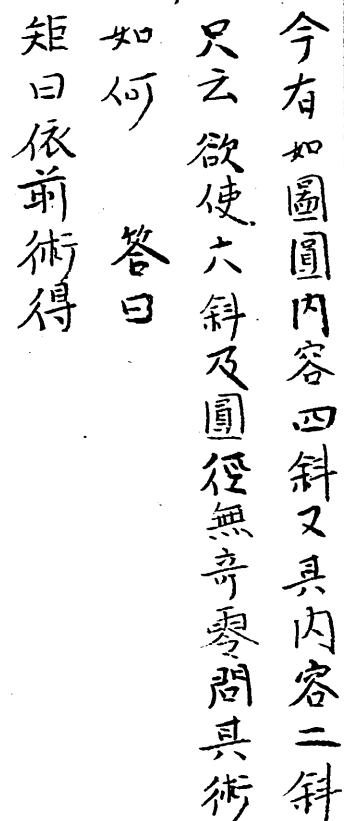 今有如圖圓内容四斜又其内容二斜
只云欲使六斜及圓徑無奇零問其術
如何　答曰
矩曰依前術得